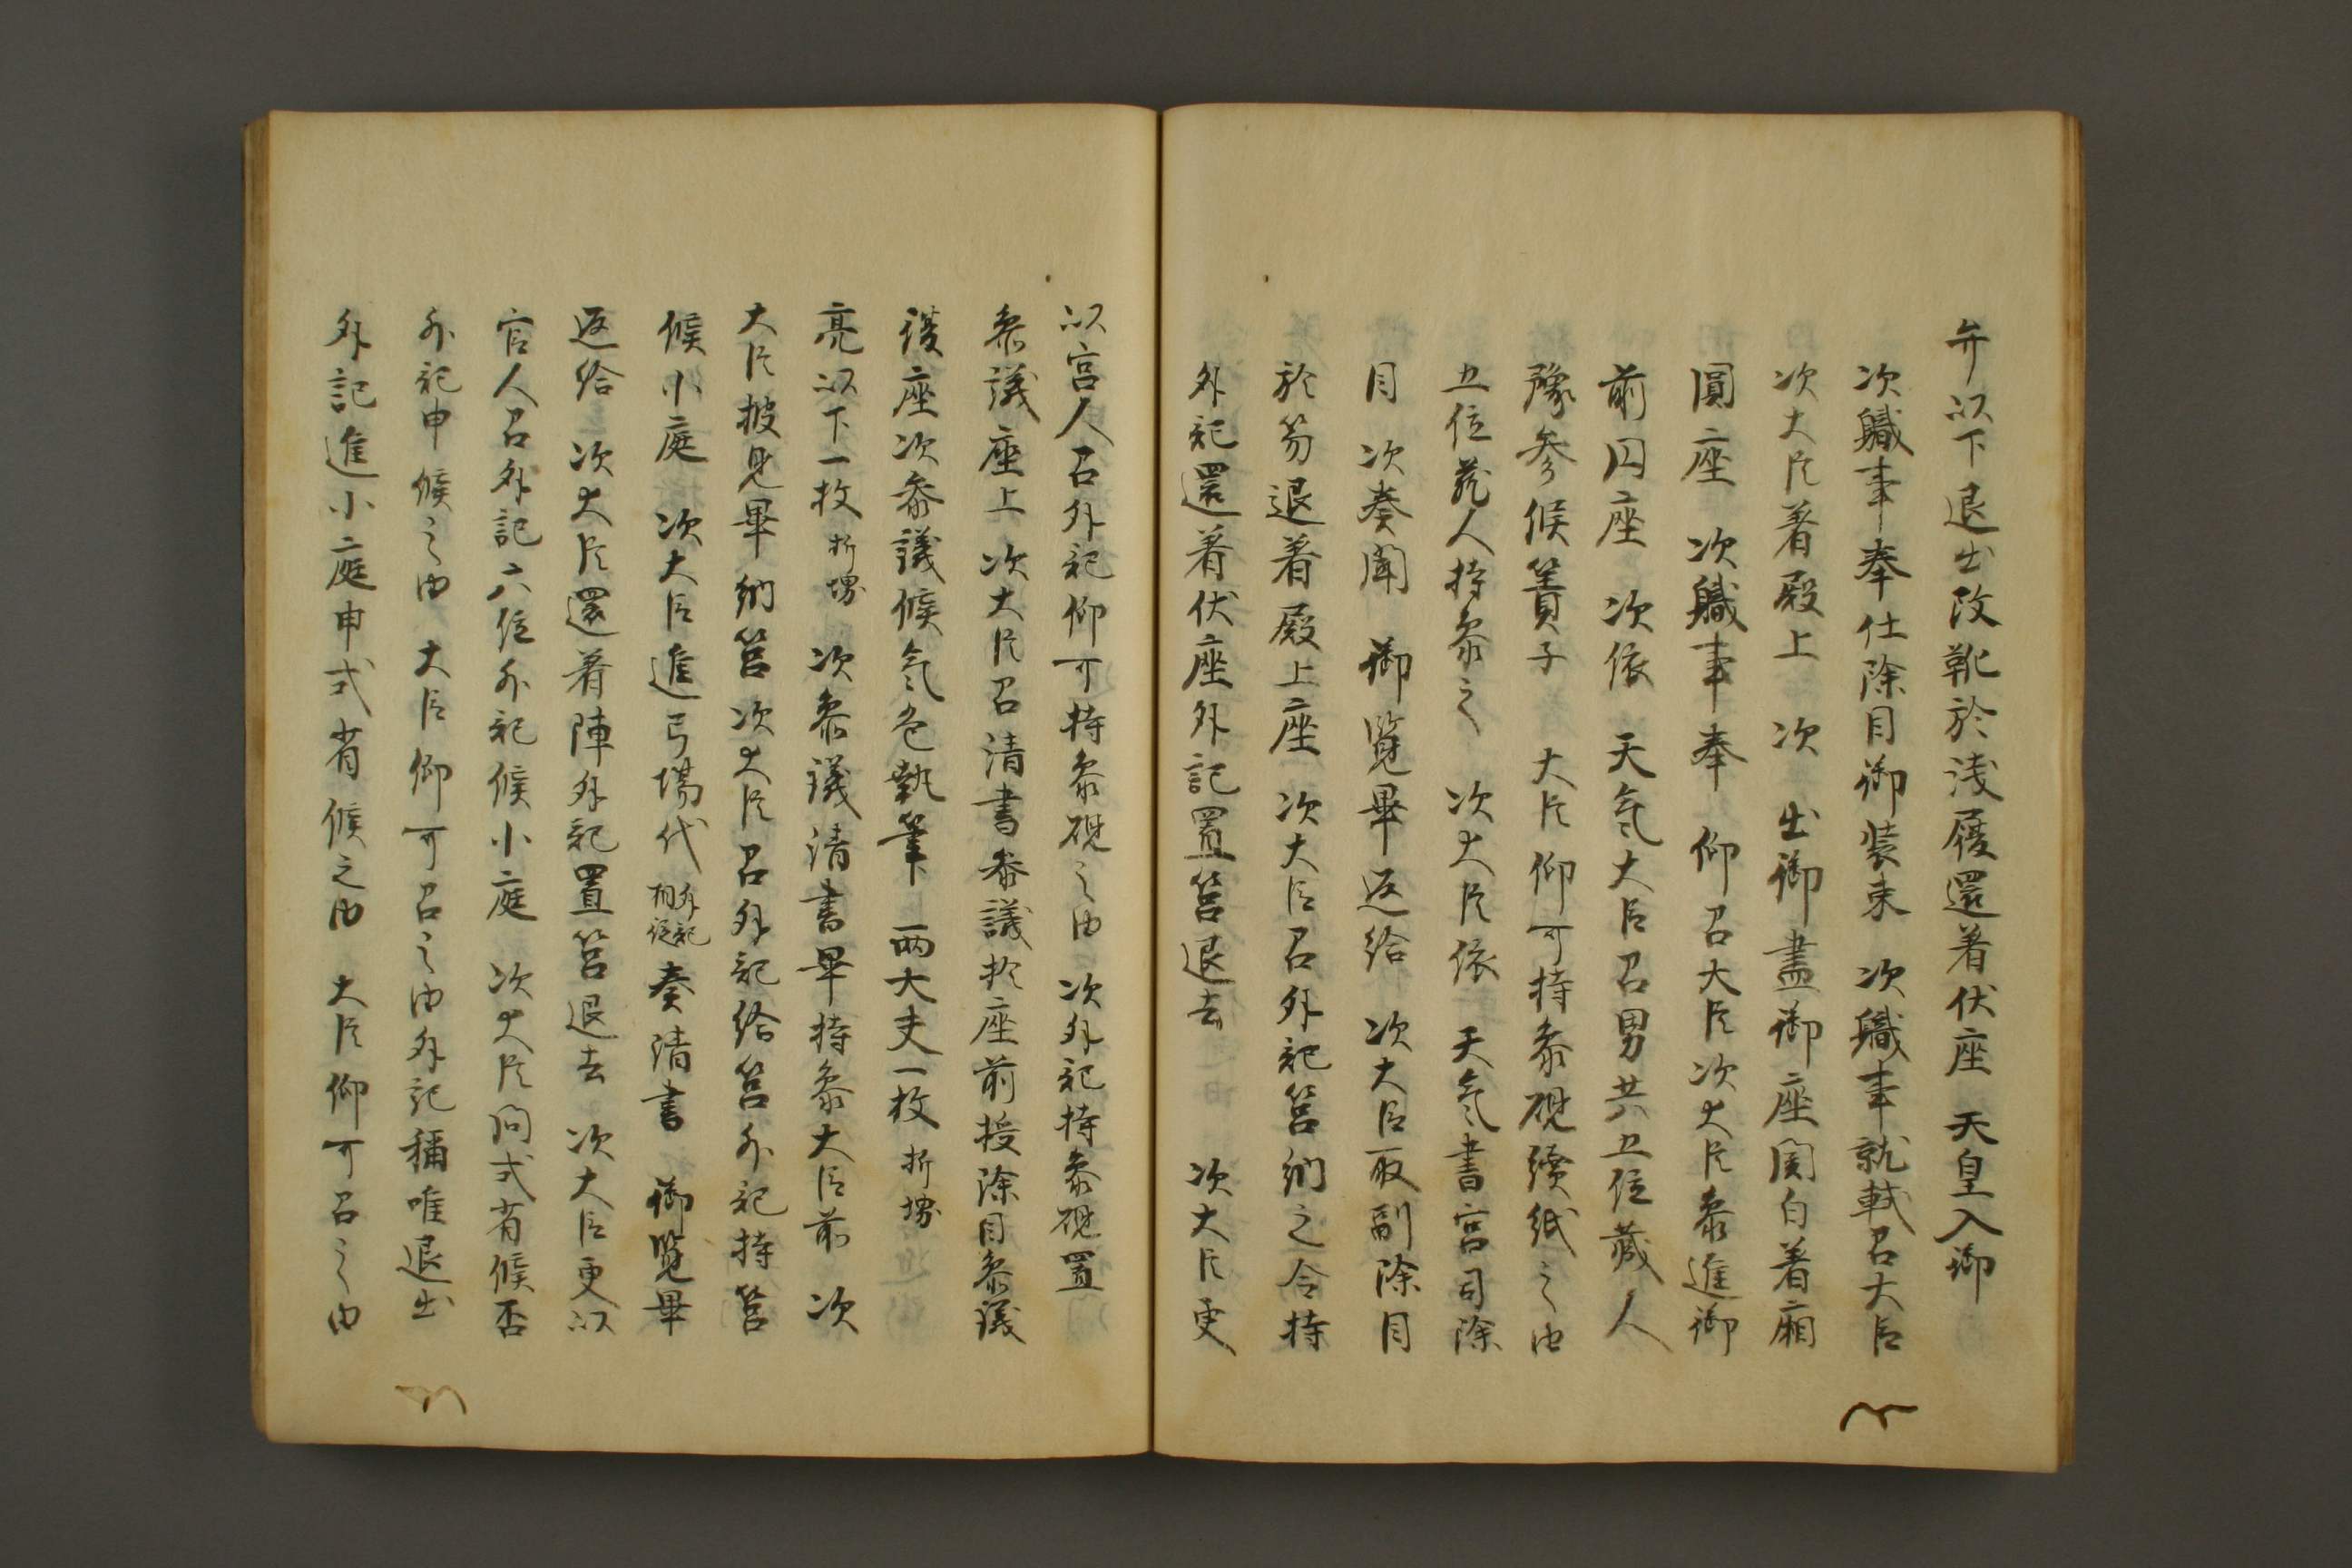 弁以下退出改靴於浅履還着伏座　天皇入御
次職事奉仕除目御装束　次職事就軾召大臣
次大臣着殿上　次　出御晝御座関白着廂
圓座　次職事奉　仰召大臣次大臣参進御
前円座　次依　天氣大臣召男共五位蔵人
豫参候簀子　大臣仰可持参硯續紙之由
五位蔵人持参之　次大臣依　天氣書宮司除
目　次奏聞　御覧畢返給　次大臣取副除目
於笏退着殿上座　次大臣召外記筥納之令持
外記還着伏座外記置筥退去　次大臣更
以官人召外記仰可持参硯之由　次外記持参硯置
参議座上　次大臣召清書参議於座前授除目参議
復座次参議候氣色執筆　両大夫一枚折堺
亮以下一枚折堺　次参議清書畢持参大臣前　次
大臣披見畢納筥次大臣召外記給筥外記持筥
候小庭　次大臣進弓場代外記相従奏清書　御覧畢
返給　次大臣還着陣外記置筥退去　次大臣更以
官人召外記六位外記候小庭　次大臣問式省候否
外記申候之由　大臣仰可召之由外記稱唯退出
外記進小庭申式省候之由　大臣仰可召之由